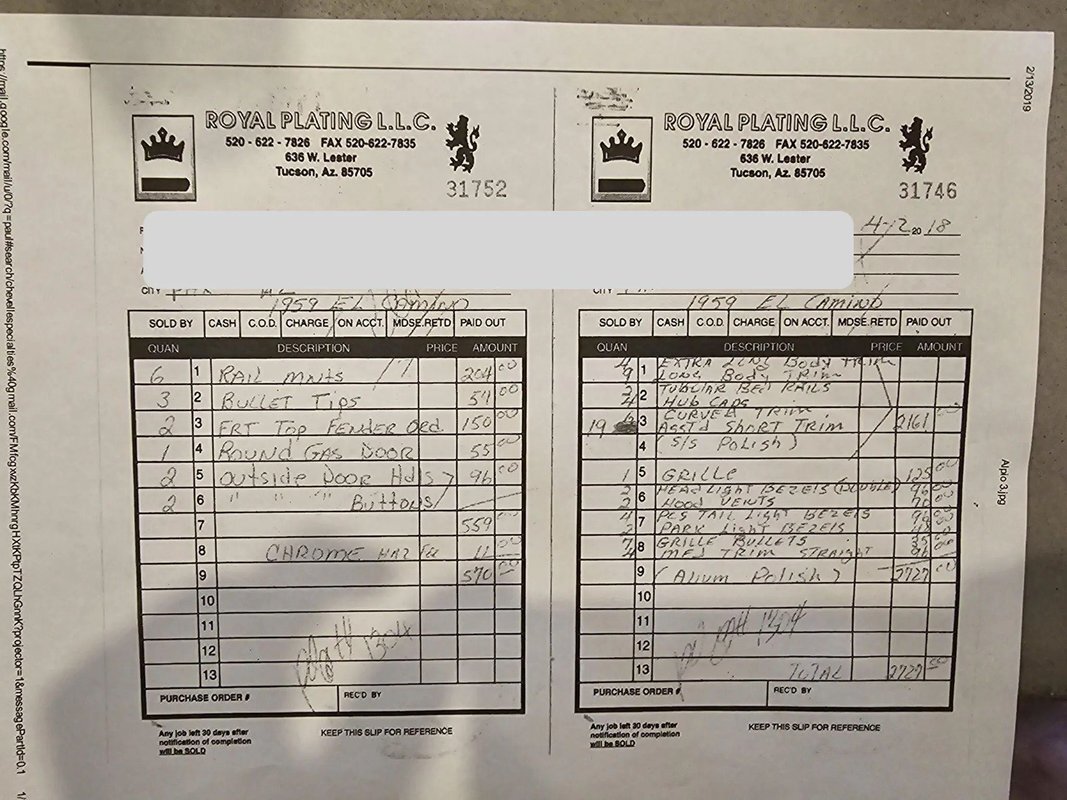 2/13/2019
ROYAL PLATING L.L.C.
520 - 622 - 7826 FAX 520-622-7835
636 W. Lester
Tucson, Az. 85705
31752
CITY
1959 EL CAMINO
SOLD BY CASH C.O.D. CHARGE ON ACCT. MDSE.RETD PAID OUT
QUAN DESCRIPTION PRICE AMOUNT
6 1 RAIL MNTS 204 00
3 2 BULLET TIPS 54 00
2 3 FRT TOP FENDER Ord. 150 00
1 4 ROUND GAS DOOR 55 00
2 5 OUTSIDE DOOR Hdls 96 00
2 6 " " " BUTTONS
7 559 00
8 CHROME HAZ Fee 11 00
9 570 00
10
11
12
13
PURCHASE ORDER # REC'D BY
Any job left 30 days after
notification of completion
will be SOLD
KEEP THIS SLIP FOR REFERENCE
ROYAL PLATING L.L.C.
520 - 622 - 7826 FAX 520-622-7835
636 W. Lester
Tucson, Az. 85705
31746
4-12 20 18
CITY
1959 EL CAMINO
SOLD BY CASH C.O.D. CHARGE ON ACCT. MDSE.RETD PAID OUT
QUAN DESCRIPTION PRICE AMOUNT
4 1 EXTRA LONG Body TRIM
9 LONG Body TRIM
2 2 TUBULAR BED RAILS
4 HUB CAPS
3 CURVED TRIM
19 ASST'd SHORT TRIM 2161
4 (S/S POLISH)
1 5 GRILLE 125 00
2 6 HEADLIGHT BEZELS (DOUBLE) 96 00
2 HOOD VENTS
4 7 PCS TAIL LIGHT BEZELS
2 PARK LIGHT BEZELS
8 GRILLE BULLETS 35
4 MED TRIM STRAIGHT 96
9 (Alum Polish) 2727 00
10
11
12
13 TOTAL 2727 00
PURCHASE ORDER # REC'D BY
Any job left 30 days after
notification of completion
will be SOLD
KEEP THIS SLIP FOR REFERENCE
Alpio 3.jpg